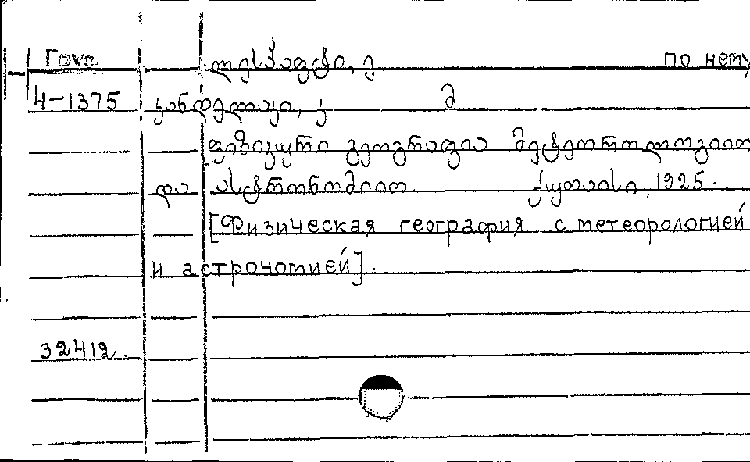 по нем,
4-1375 კანდელაკი, კ მ
ფიზიკური გეოგრაფია მეტეოროლოგიით
და ასტრონომიით. ქუთაისი, 1925.
[Физическая география с метеорологией
и астрономией].
32412.